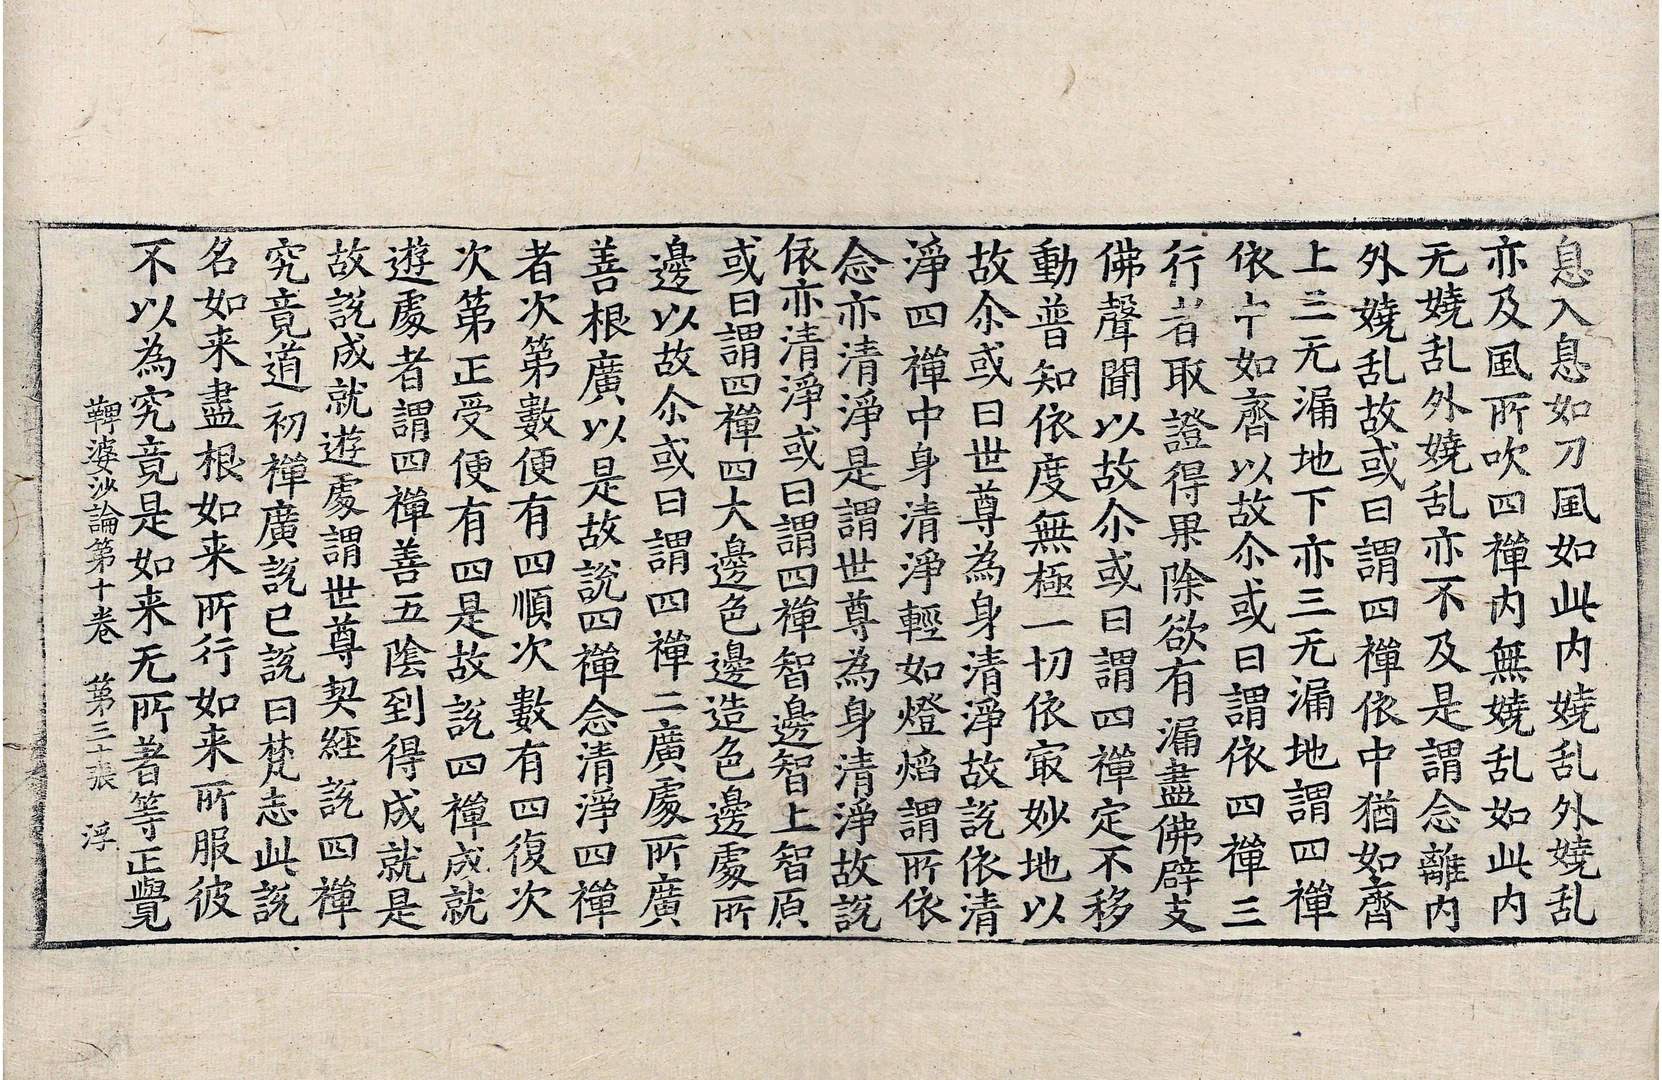 息入息如刀風如此内嬈乱外嬈乱
亦及風所吹四禪内無嬈乱如此内
无嬈乱外嬈乱亦不及是謂念離内
外嬈乱故或曰謂四禪依中猶如齊
上三无漏地下亦三无漏地謂四禪
依中如齊以故尒或曰謂依四禪三
行者取證得果除欲有漏盡佛辟支
佛聲聞以故尒或曰謂四禪定不移
動普知依度無極一切依㝡妙地以
故尒或曰世尊為身清淨故說依清
淨四禪中身清淨輕如燈焰謂所依
念亦清淨是謂世尊為身清淨故說
依亦清淨或曰謂四禪智邊智上智原
或曰謂四禪四大邊色邊造色邊處所
邊以故尒或曰謂四禪二廣處所廣
善根廣以是故說四禪念清淨四禪
者次第數便有四順次數有四復次
次第正受便有四是故說四禪成就
遊處者謂四禪善五陰到得成就是
故說成就遊處謂世尊契經說四禪
究竟道初禪廣說已說曰梵志此說
名如来盡根如来所行如来所服彼
不以為究竟是如来无所著等正覺
鞞婆沙論第十卷　第三十張　浮